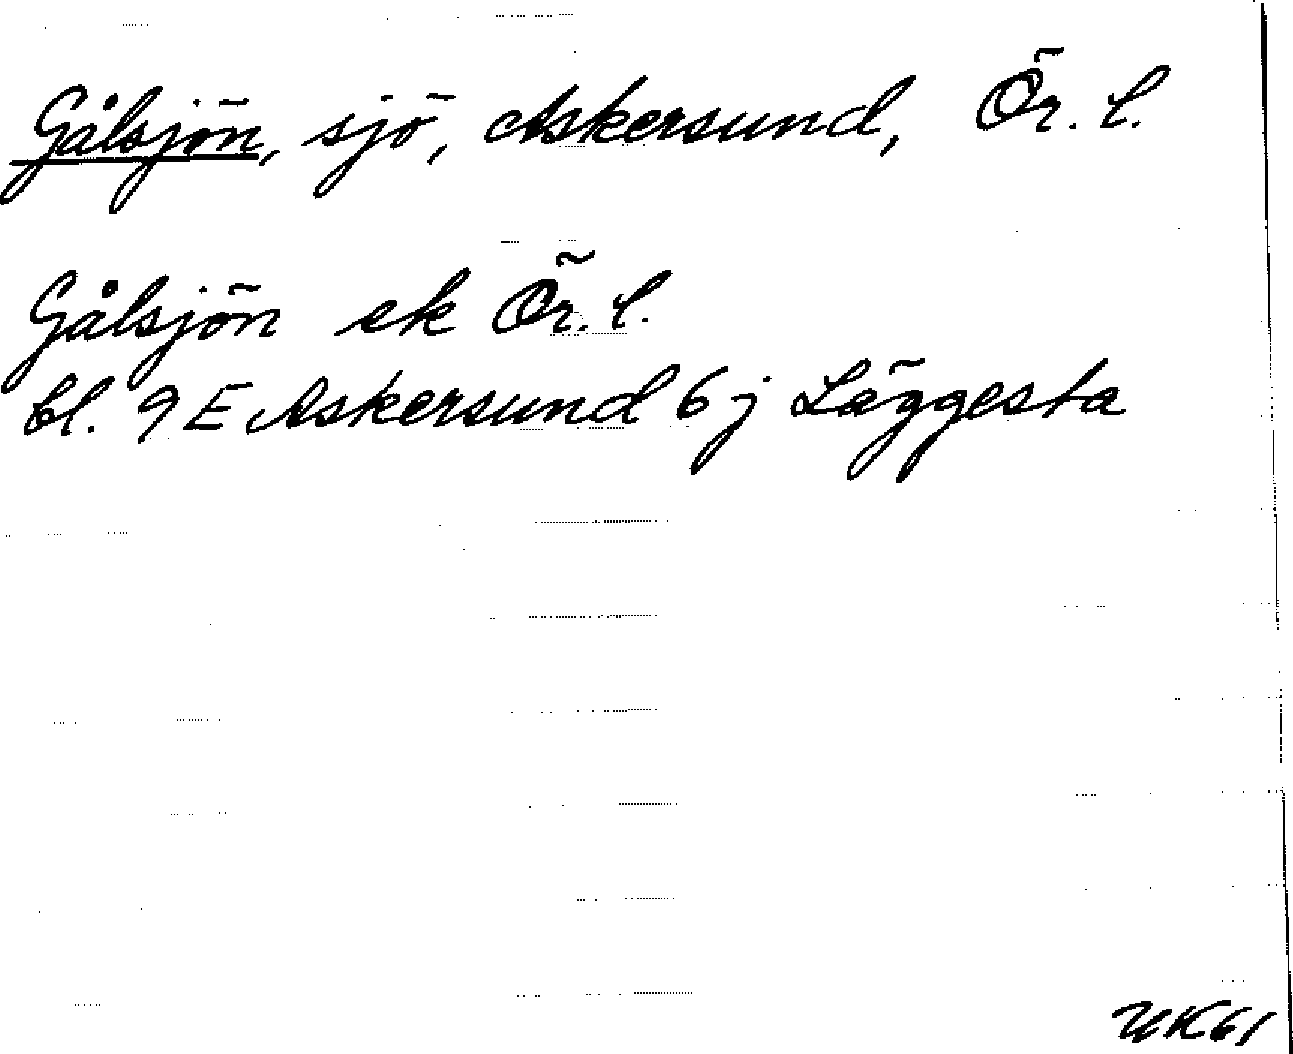 Gålsjön, sjö, Askersund, Ör. l.
Gålsjön ek Ör. l.
bl. 9 E Askersund 6 j Läggesta
UK61